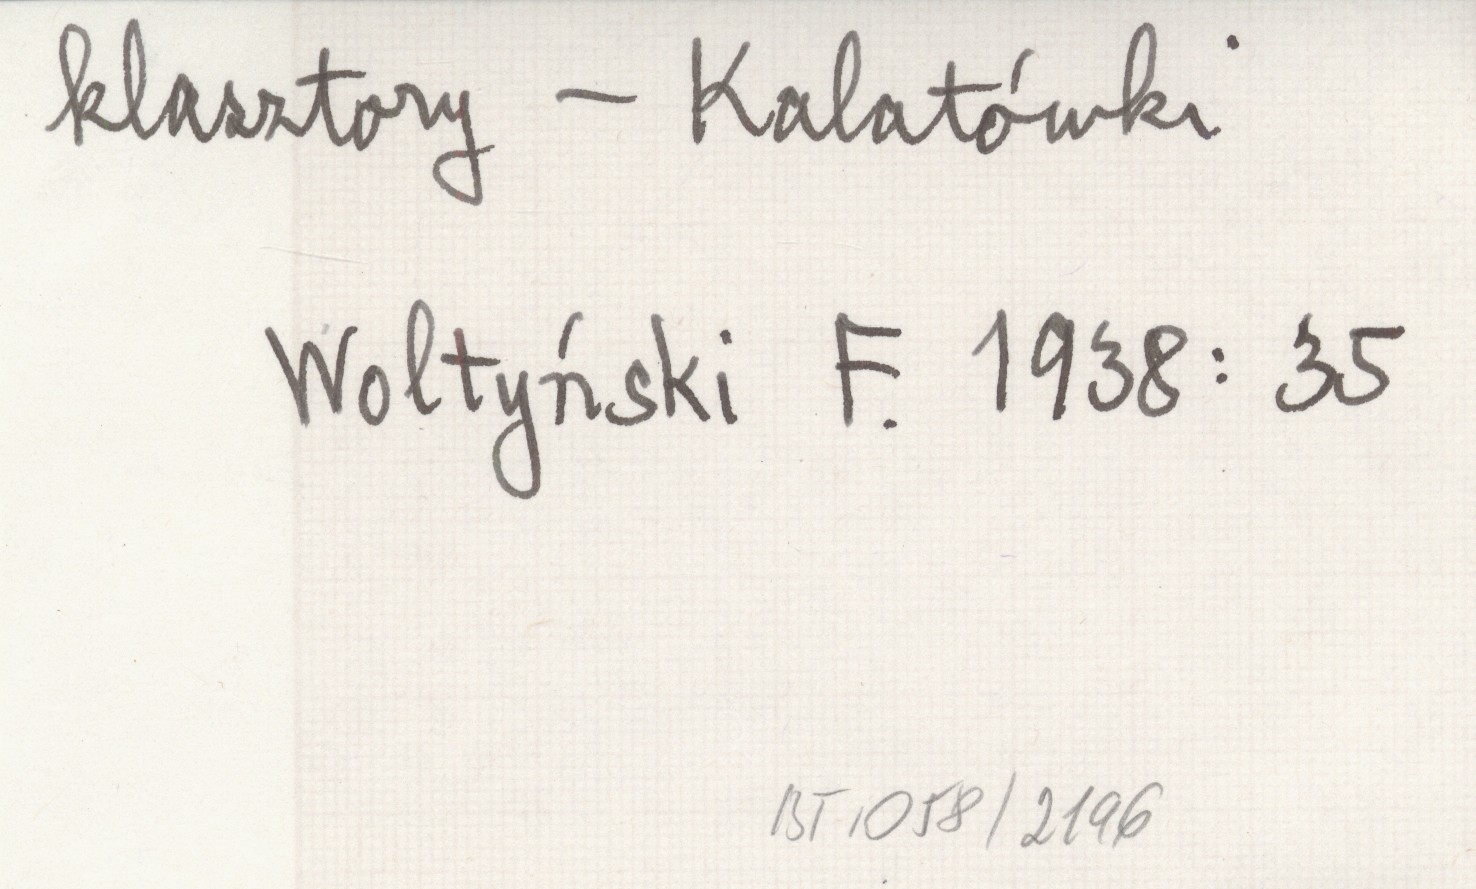 klasztory – Kalatówki
Woltyński F. 1938: 35
BT 1058/2196